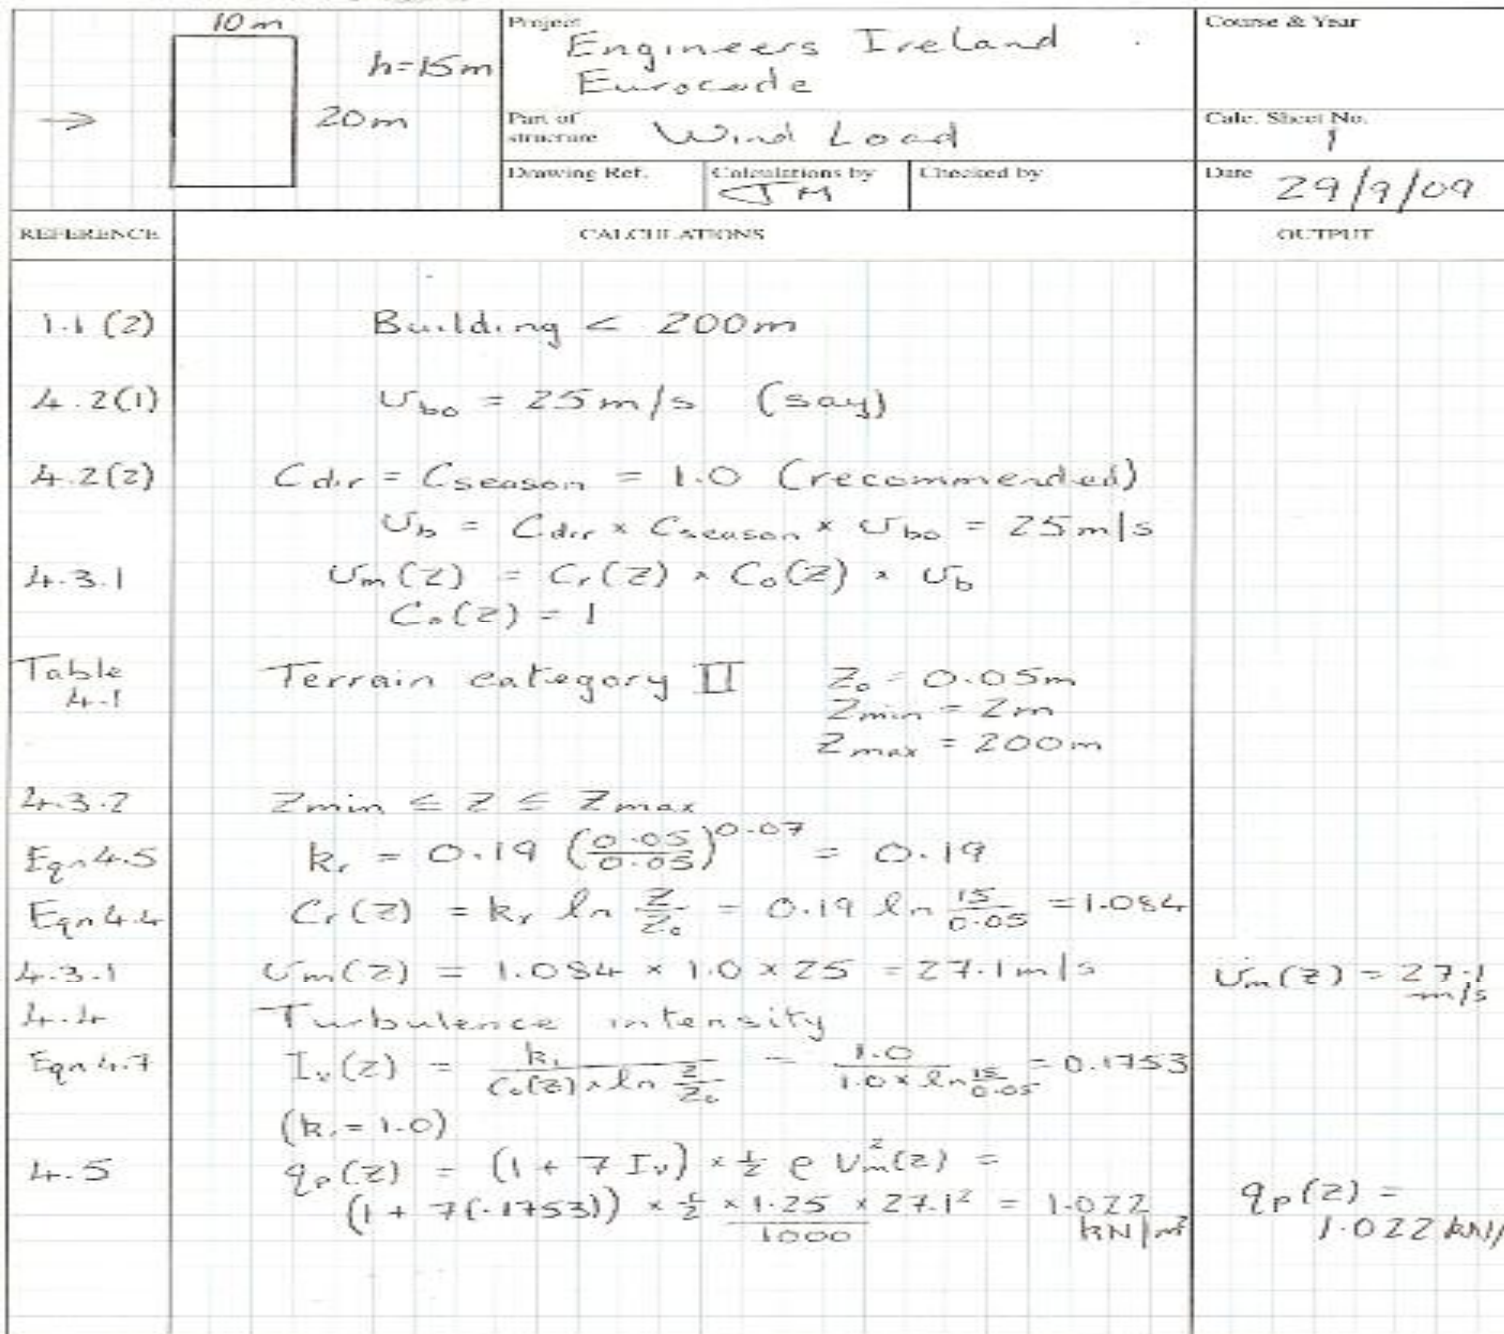 10m
h=15m
20m
Project
Engineers Ireland
Eurocode
Course & Year
Part of structure
Wind Load
Calc. Sheet No.
1
Drawing Ref.
Calculations by
JM
Checked by
Date
29/9/09
REFERENCE
CALCULATIONS
OUTPUT
1.1 (2) Building < 200m
4.2(1) v_bo = 25m/s (say)
4.2(2) Cdir = Cseason = 1.0 (recommended)
v_b = Cdir × Cseason × v_bo = 25m/s
4.3.1 v_m(z) = C_r(z) × C_o(z) × v_b
C_o(z) = 1
Table 4.1 Terrain category II z_o = 0.05m
z_min = 2m
z_max = 200m
4.3.2 z_min ≤ z ≤ z_max
Eqn 4.5 k_r = 0.19 (0.05/0.05)^0.07 = 0.19
Eqn 4.4 C_r(z) = k_r ln z/z_o = 0.19 ln 15/0.05 = 1.084
4.3.1 v_m(z) = 1.084 × 1.0 × 25 = 27.1m/s v_m(z) = 27.1 m/s
4.4 Turbulence intensity
Eqn 4.7 I_v(z) = k_1/(C_o(z) × ln z/z_o) = 1.0/(1.0 × ln 15/0.05) = 0.1753
(k_1 = 1.0)
4.5 q_p(z) = (1 + 7 I_v) × ½ ρ v_m²(z) =
(1 + 7(.1753)) × ½ × 1.25 × 27.1² / 1000 = 1.022 kN/m²
q_p(z) =
1.022 kN/